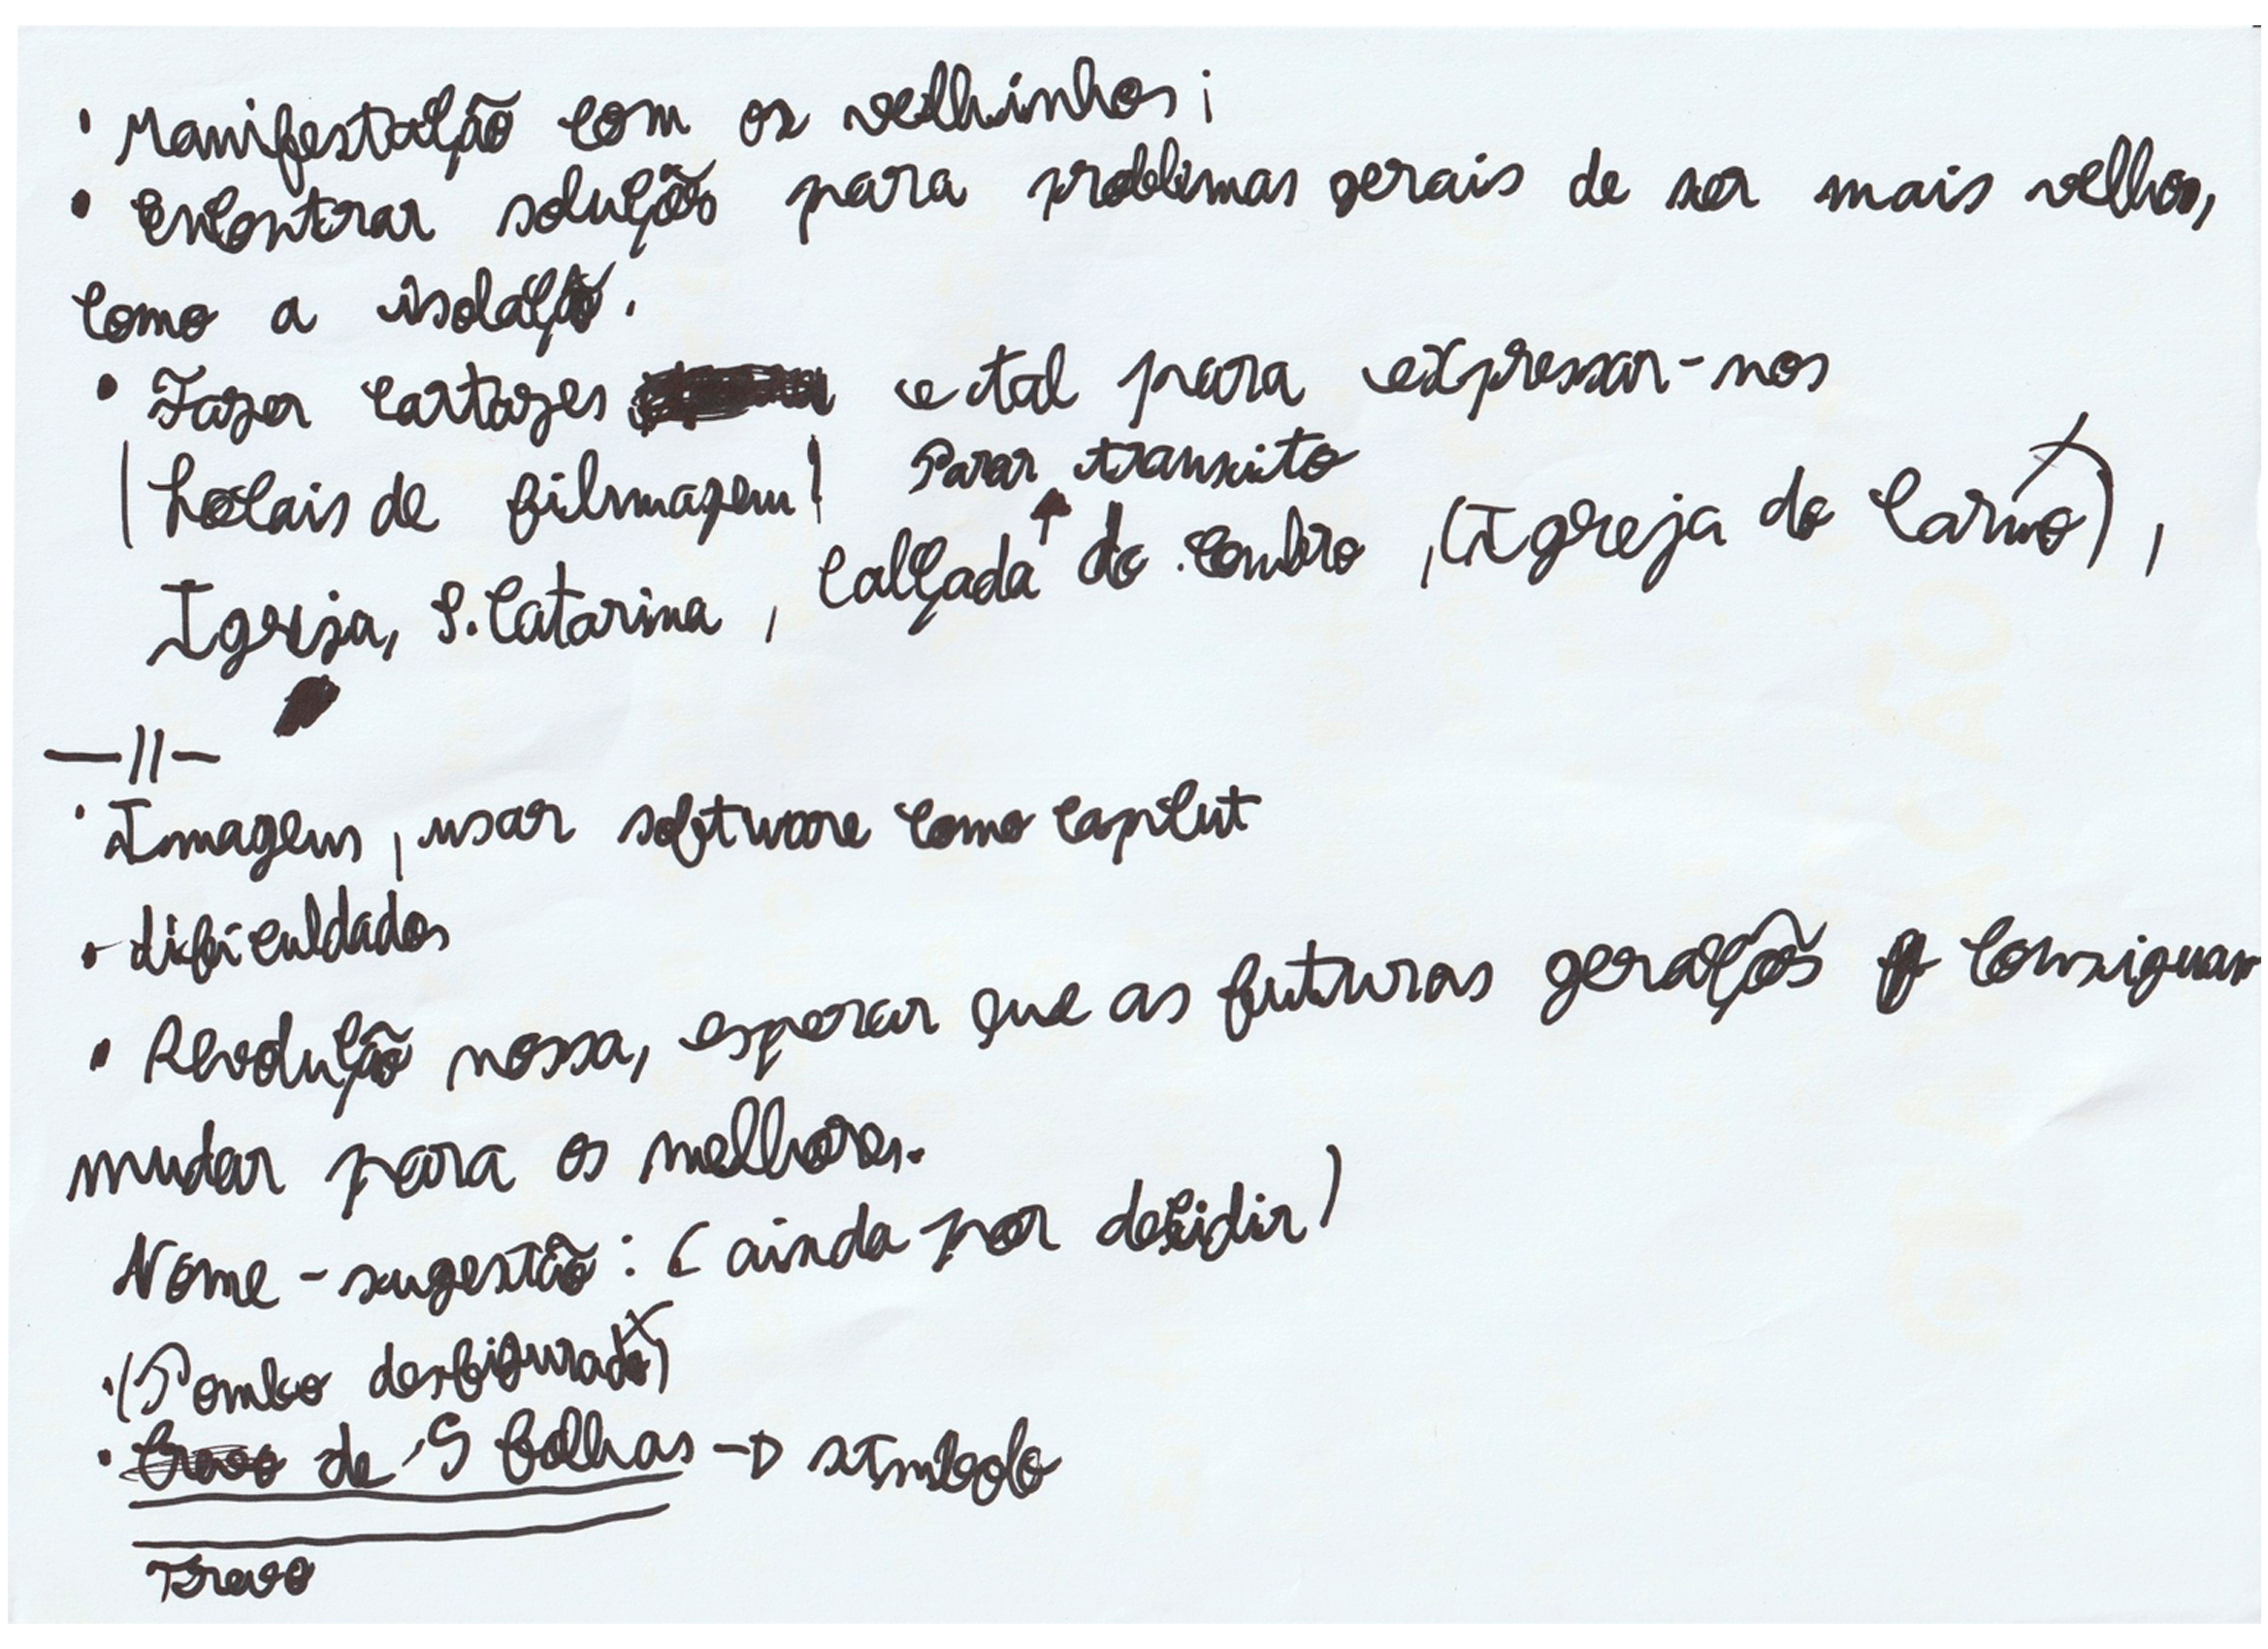 • Manifestação com os velhinhos;
• Encontrar soluções para problemas gerais de ser mais velhos,
como a isolação.
• Fazer cartazes e tal para expressar-nos
(Locais de filmagem) Parar transito
Igreja, S. Catarina, Calçada do Combro, (Igreja do Carmo),
—//—
• Imagens, usar software como capcut
• dificuldados
• Revolução nossa, esperar que as futuras gerações consiguam
mudar para os melhores.
Nome - sugestão: (ainda por decidir)
• (Pombo desfigurado)
• trevo de 5 folhas → símbolo
Trevo